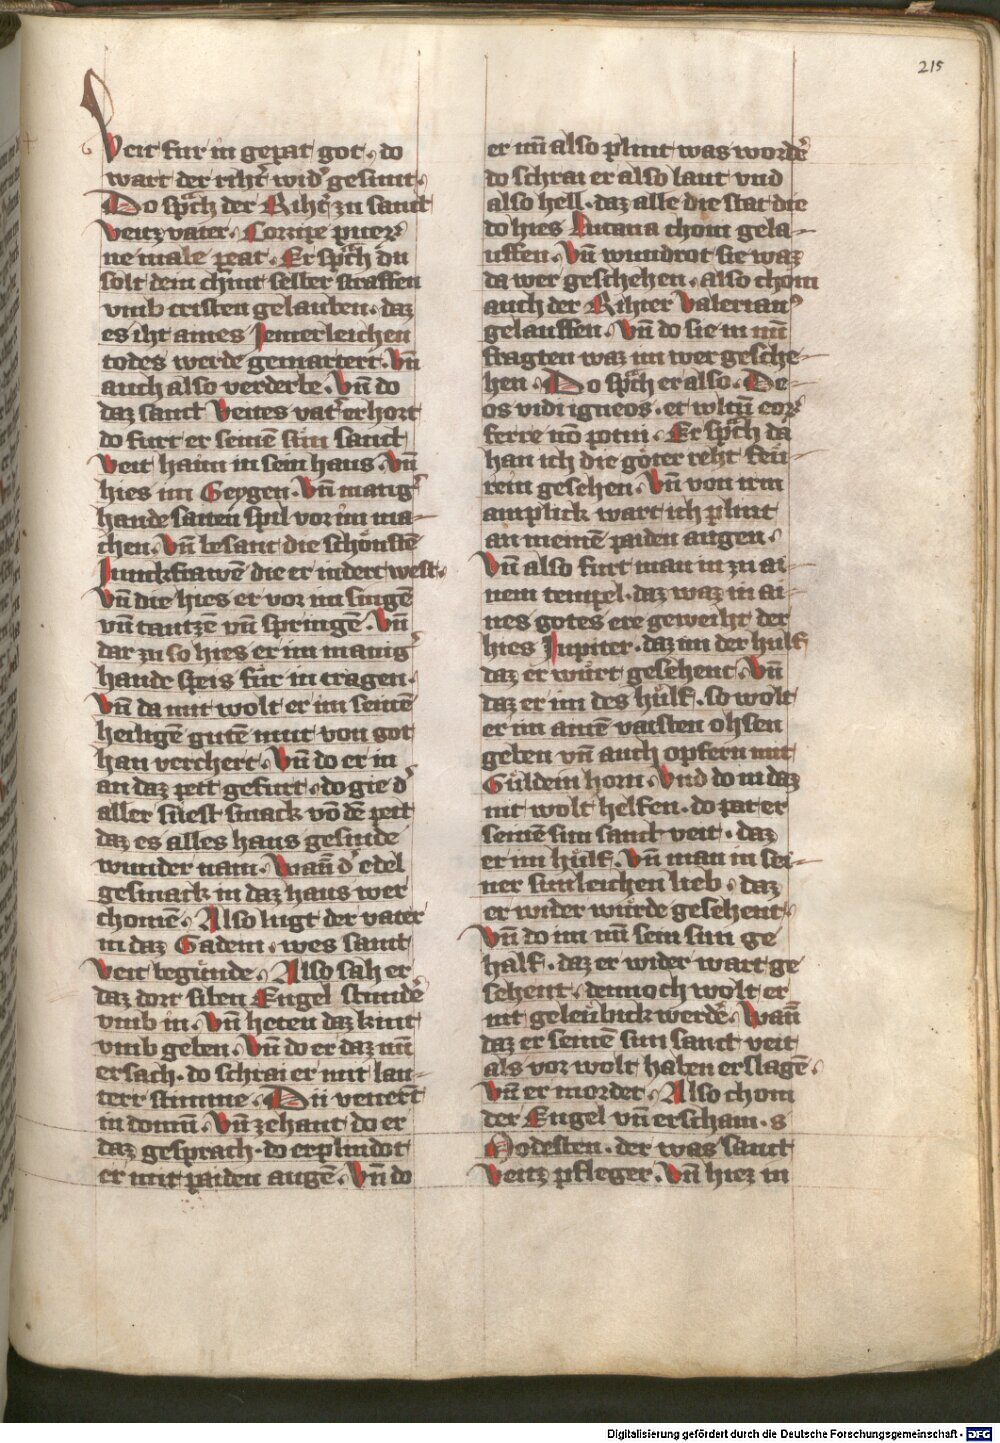 215
Veit fur in gepat got. do
wart der riht͛ wid͛ gesunt.
Do sp̃ch der Riht͛ zu sanct
Veitz vater. Corripe puer͛
ne male peat. Er sp̃ch du
solt dem chint selber straffen
vmb cristen gelauben. daz
es iht aines Jemerleichen
todes werde gemartert. Vñ
auch also verderbe. Vñ do
daz sanct Veites vat͛ erhort
do furt er seinē sun sanct
Veit haim in sein haus. Vñ
hies im Geygen. Vñ manig͛
hande saiten spil vor im ma-
chen. Vñ besant die schönstē
Junckfrawē die er indert west.
Vñ die hies er vor im singē
vñ tantzē vñ springē. Vñ
dar zu so hies er im manig͛
hande speis für in tragen.
Vñ da mit wolt er im seinē
heiligē gutē mut von got
han verchert. Vñ do er in
an daz pett gefurt. do gie d͛
aller süest smack vō dē pett
daz es alles haus gesinde
wunder nam. Wañ d͛ edel
gesmack in daz haus wer
chomē. Also lugt der vater
in daz Gadem. wes sanct
Veit begünde. Also sah er
daz dort siben Engel stundē
vmb in. Vñ heten daz kint
vmb geben. Vñ do er daz nū
ersach. do schrai er mit lau-
terr stimme. Dii venerūt
in domū. Vñ zehant do er
daz gesprach. do erplindot
er mit paiden augē. Vñ do
er nū also plint was wordē
do schrai er also laut vnd
also hell. daz alle die stat die
do hies Lucana chom gela-
uffen. Vñ wundrot sie waz
da wer geschehen. also chom
auch der Rihter Valerian͛
gelauffen. Vñ do sie in nū
fragten waz im wer gesche-
hen. Do sp̃ch er also. De-
os vidi igneos. et wltū eor͛
ferre nō potui. Er sp̃ch da
han ich die göter reht feu-
rein gesehen. Vñ von irm
anplick wart ich plint
an meinē paiden augen.
Vñ also furt man in zu ai-
nem tempel. daz waz in ai-
nes gotes ere geweiht der
hies Jupiter. daz im der hulf
daz er würt gesehent. Vñ
daz er im des hülf. so wolt
er im ainē vaisten ohsen
geben vñ auch opfern mit
Güldein horn. Vnd do in daz
nit wolt helfen. do pat er
seinē sun sanct veit. daz
er im hülf. Vñ man in sei-
ner sunleichen lieb. daz
er wider würde gesehent.
Vñ do im nū sein sun ge
half. daz er wider wart ge
sehent. dennoch wolt er
nit geleubick werdē. Wañ
daz er seinē sun sanct veit
als vor wolt haben erslagē.
Vñ er mordet. Also chom
der Engel vñ erscham. s
Modesten. der was sanct
Veitz pfleger. Vñ hiez in
Digitalisierung gefördert durch die Deutsche Forschungsgemeinschaft - DFG